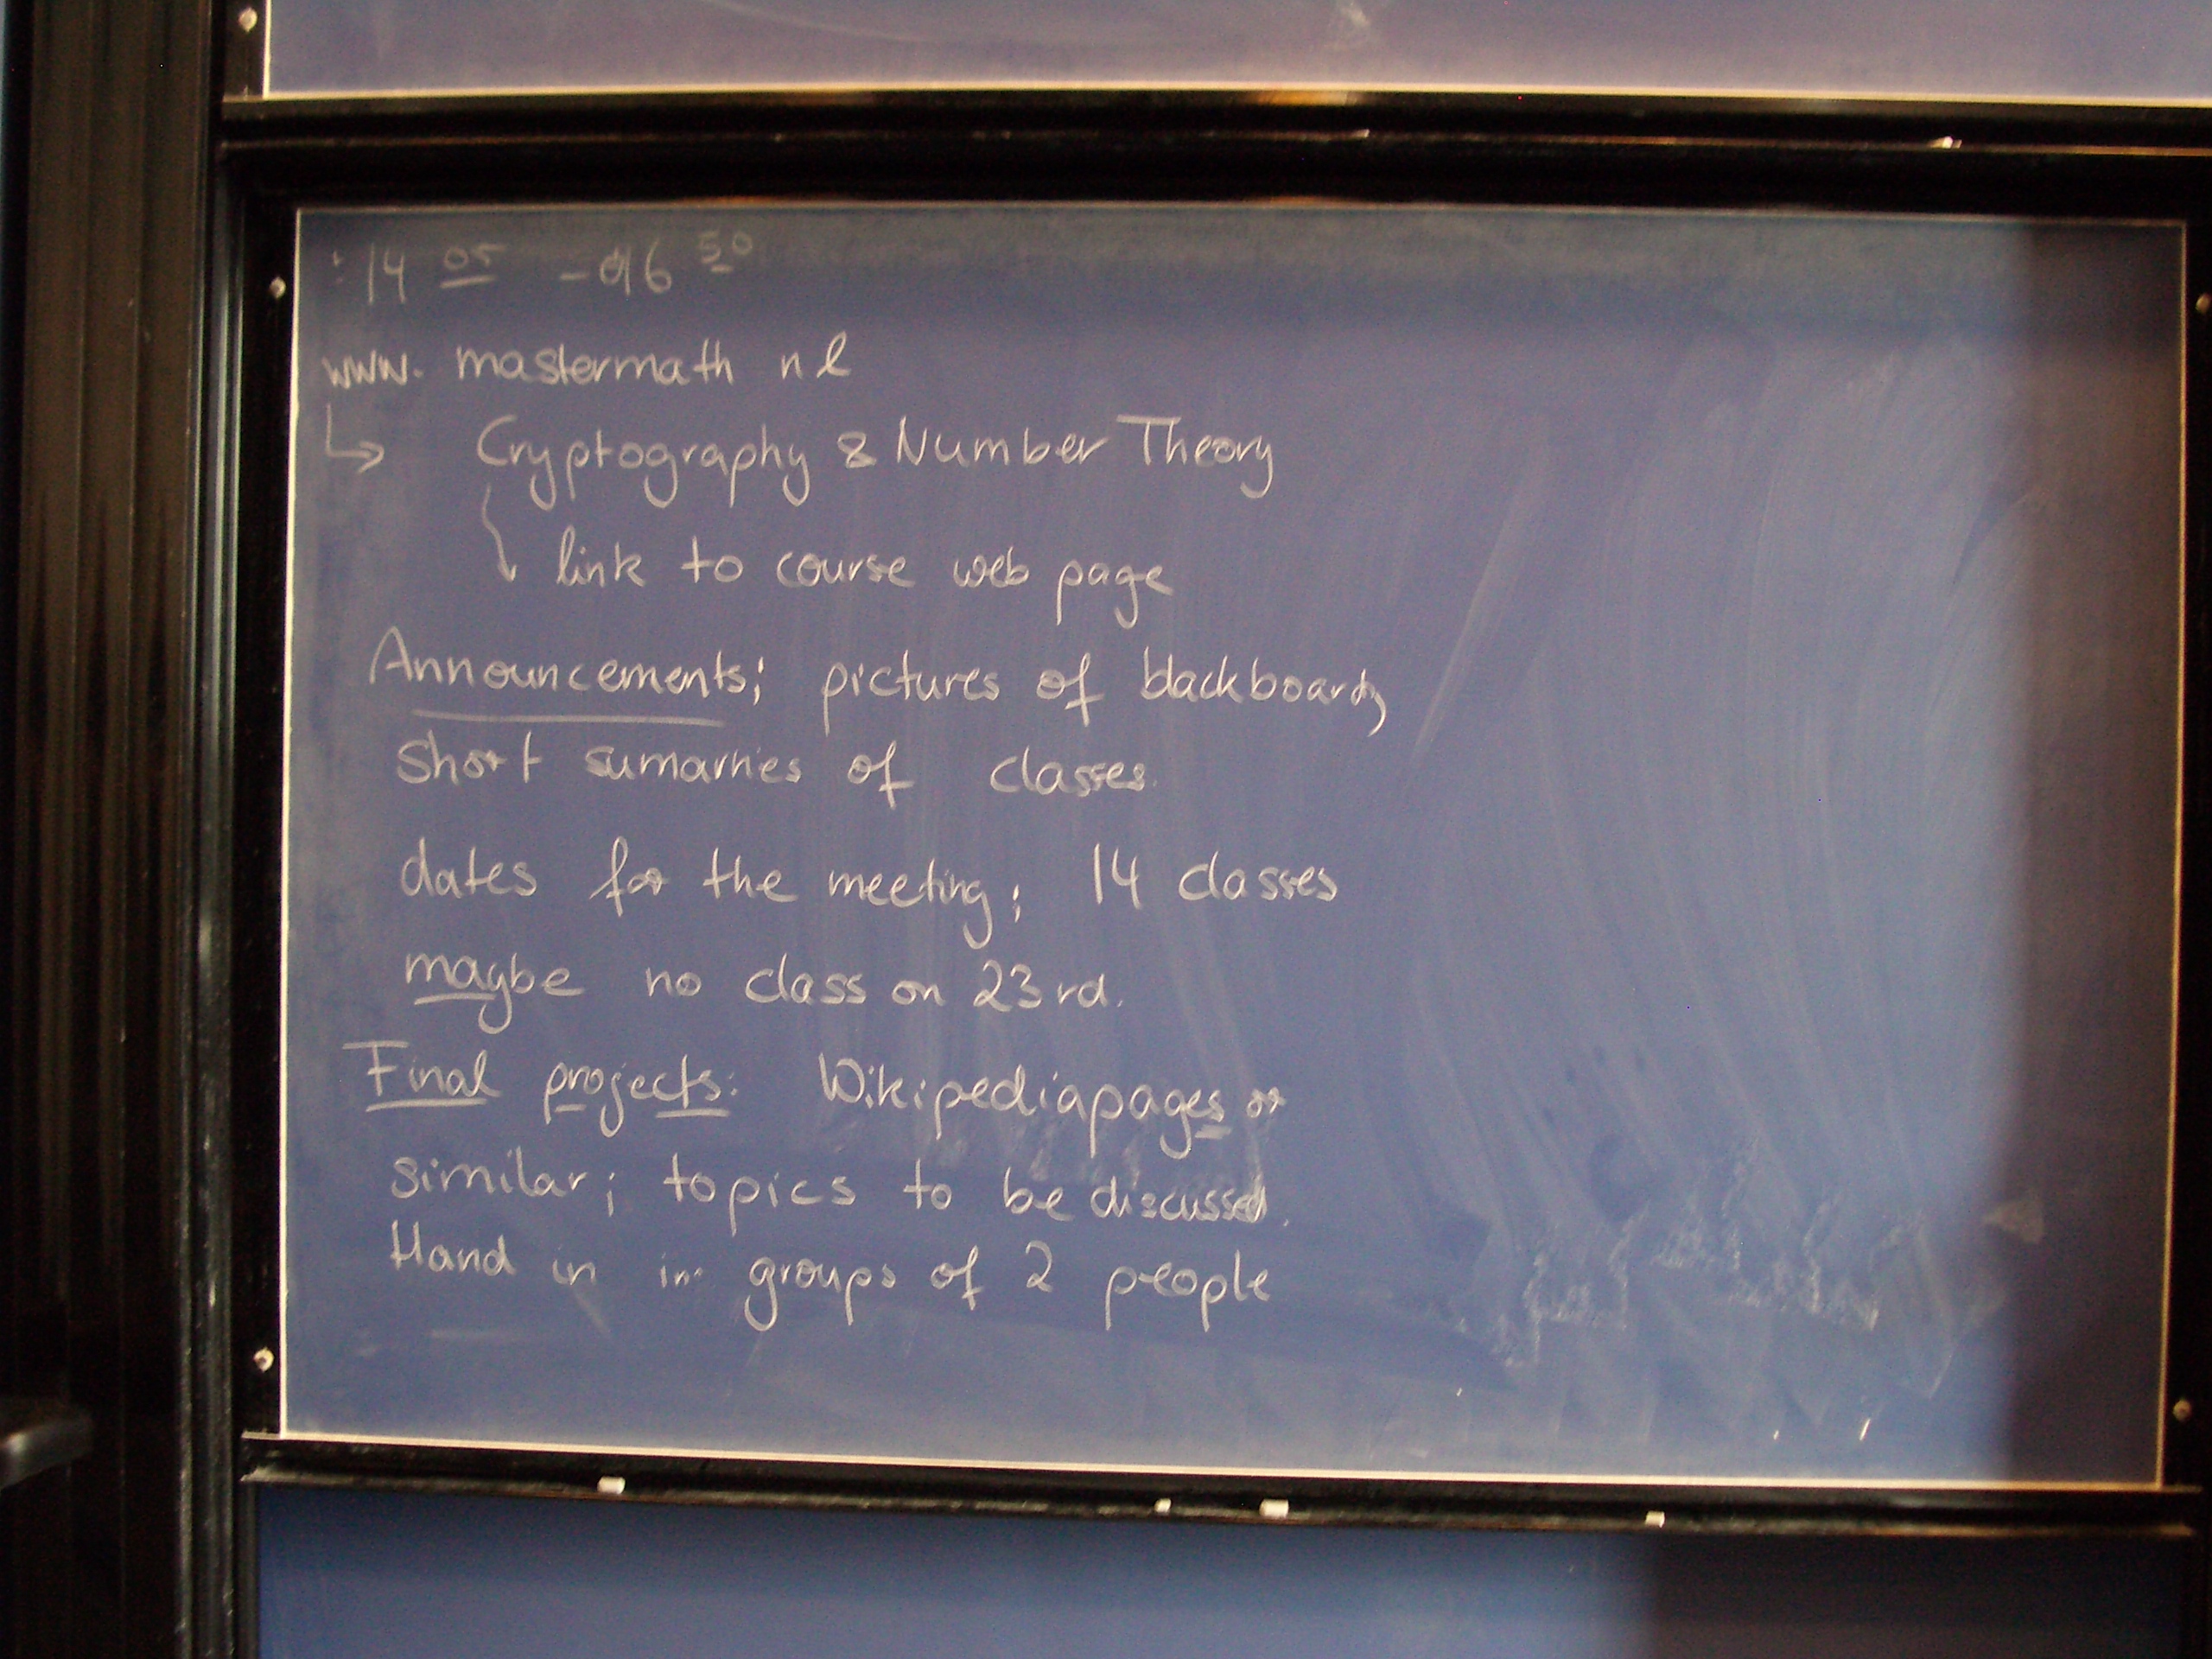 :14 05 - 16 50
www. mastermath nl
↳ Cryptography & Number Theory
↓ link to course web page
Announcements; pictures of blackboards,
short sumarries of classes.
dates for the meeting; 14 classes
maybe no class on 23rd.
Final projects: Wikipediapages or
similar; topics to be discussed.
Hand in in groups of 2 people